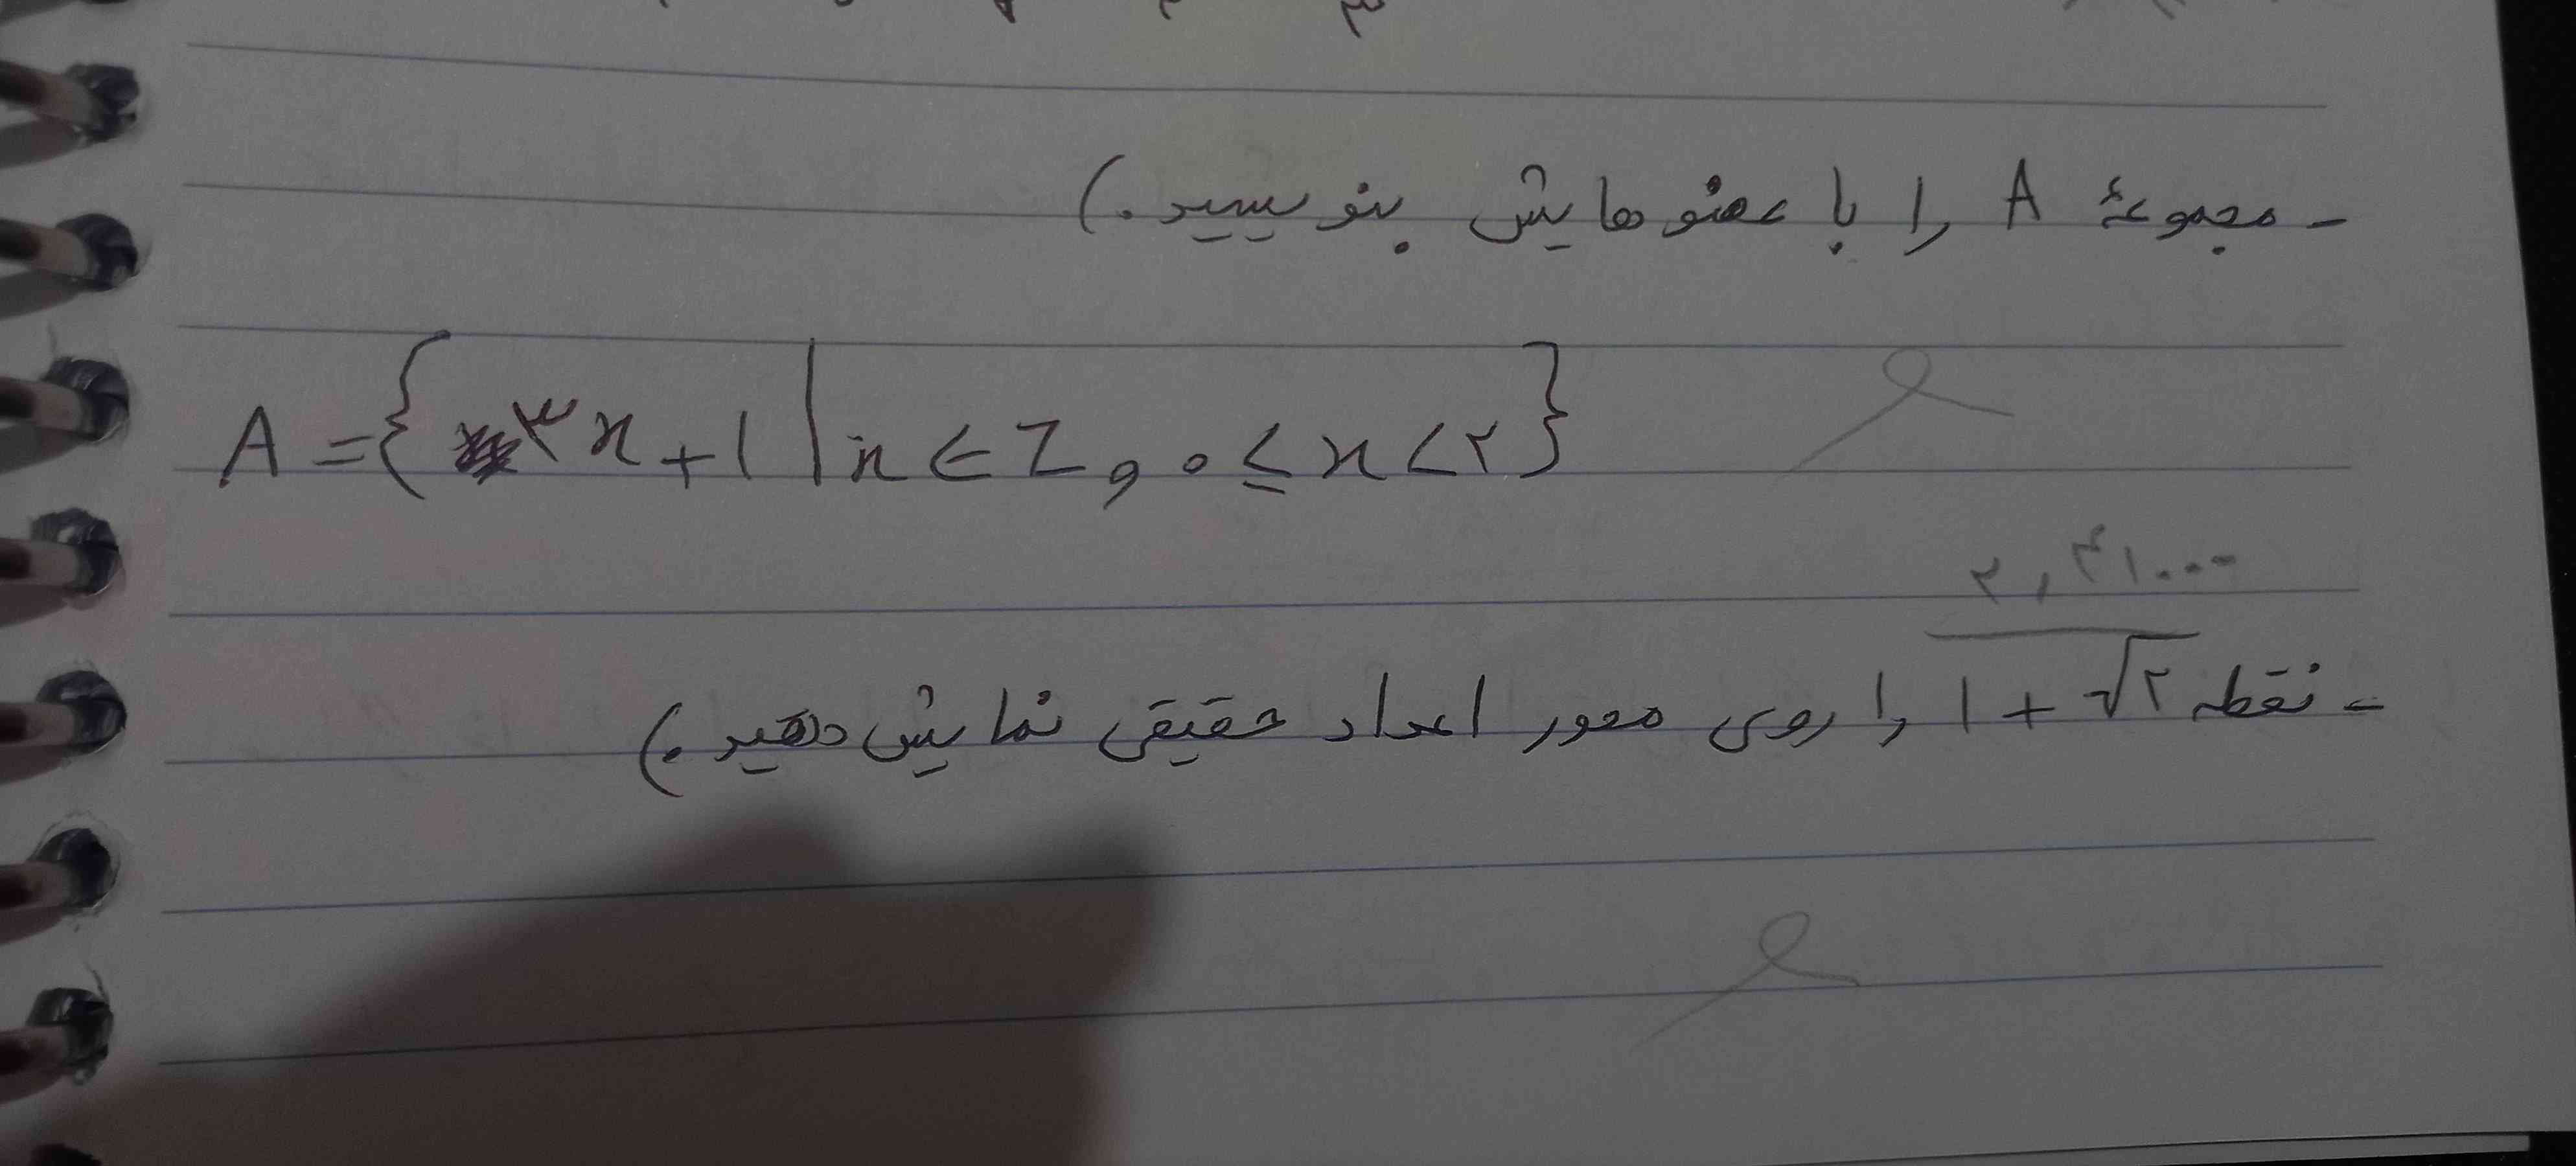 - مجموعهٔ A را با عضوهایش بنویسید.)
A = { ۳x + ۱ | x ∈ Z , ۰ ≤ x < ۲ }
۲,۴۱...
- نقطه √۲ + ۱ را روی محور اعداد حقیقی نمایش دهید.)